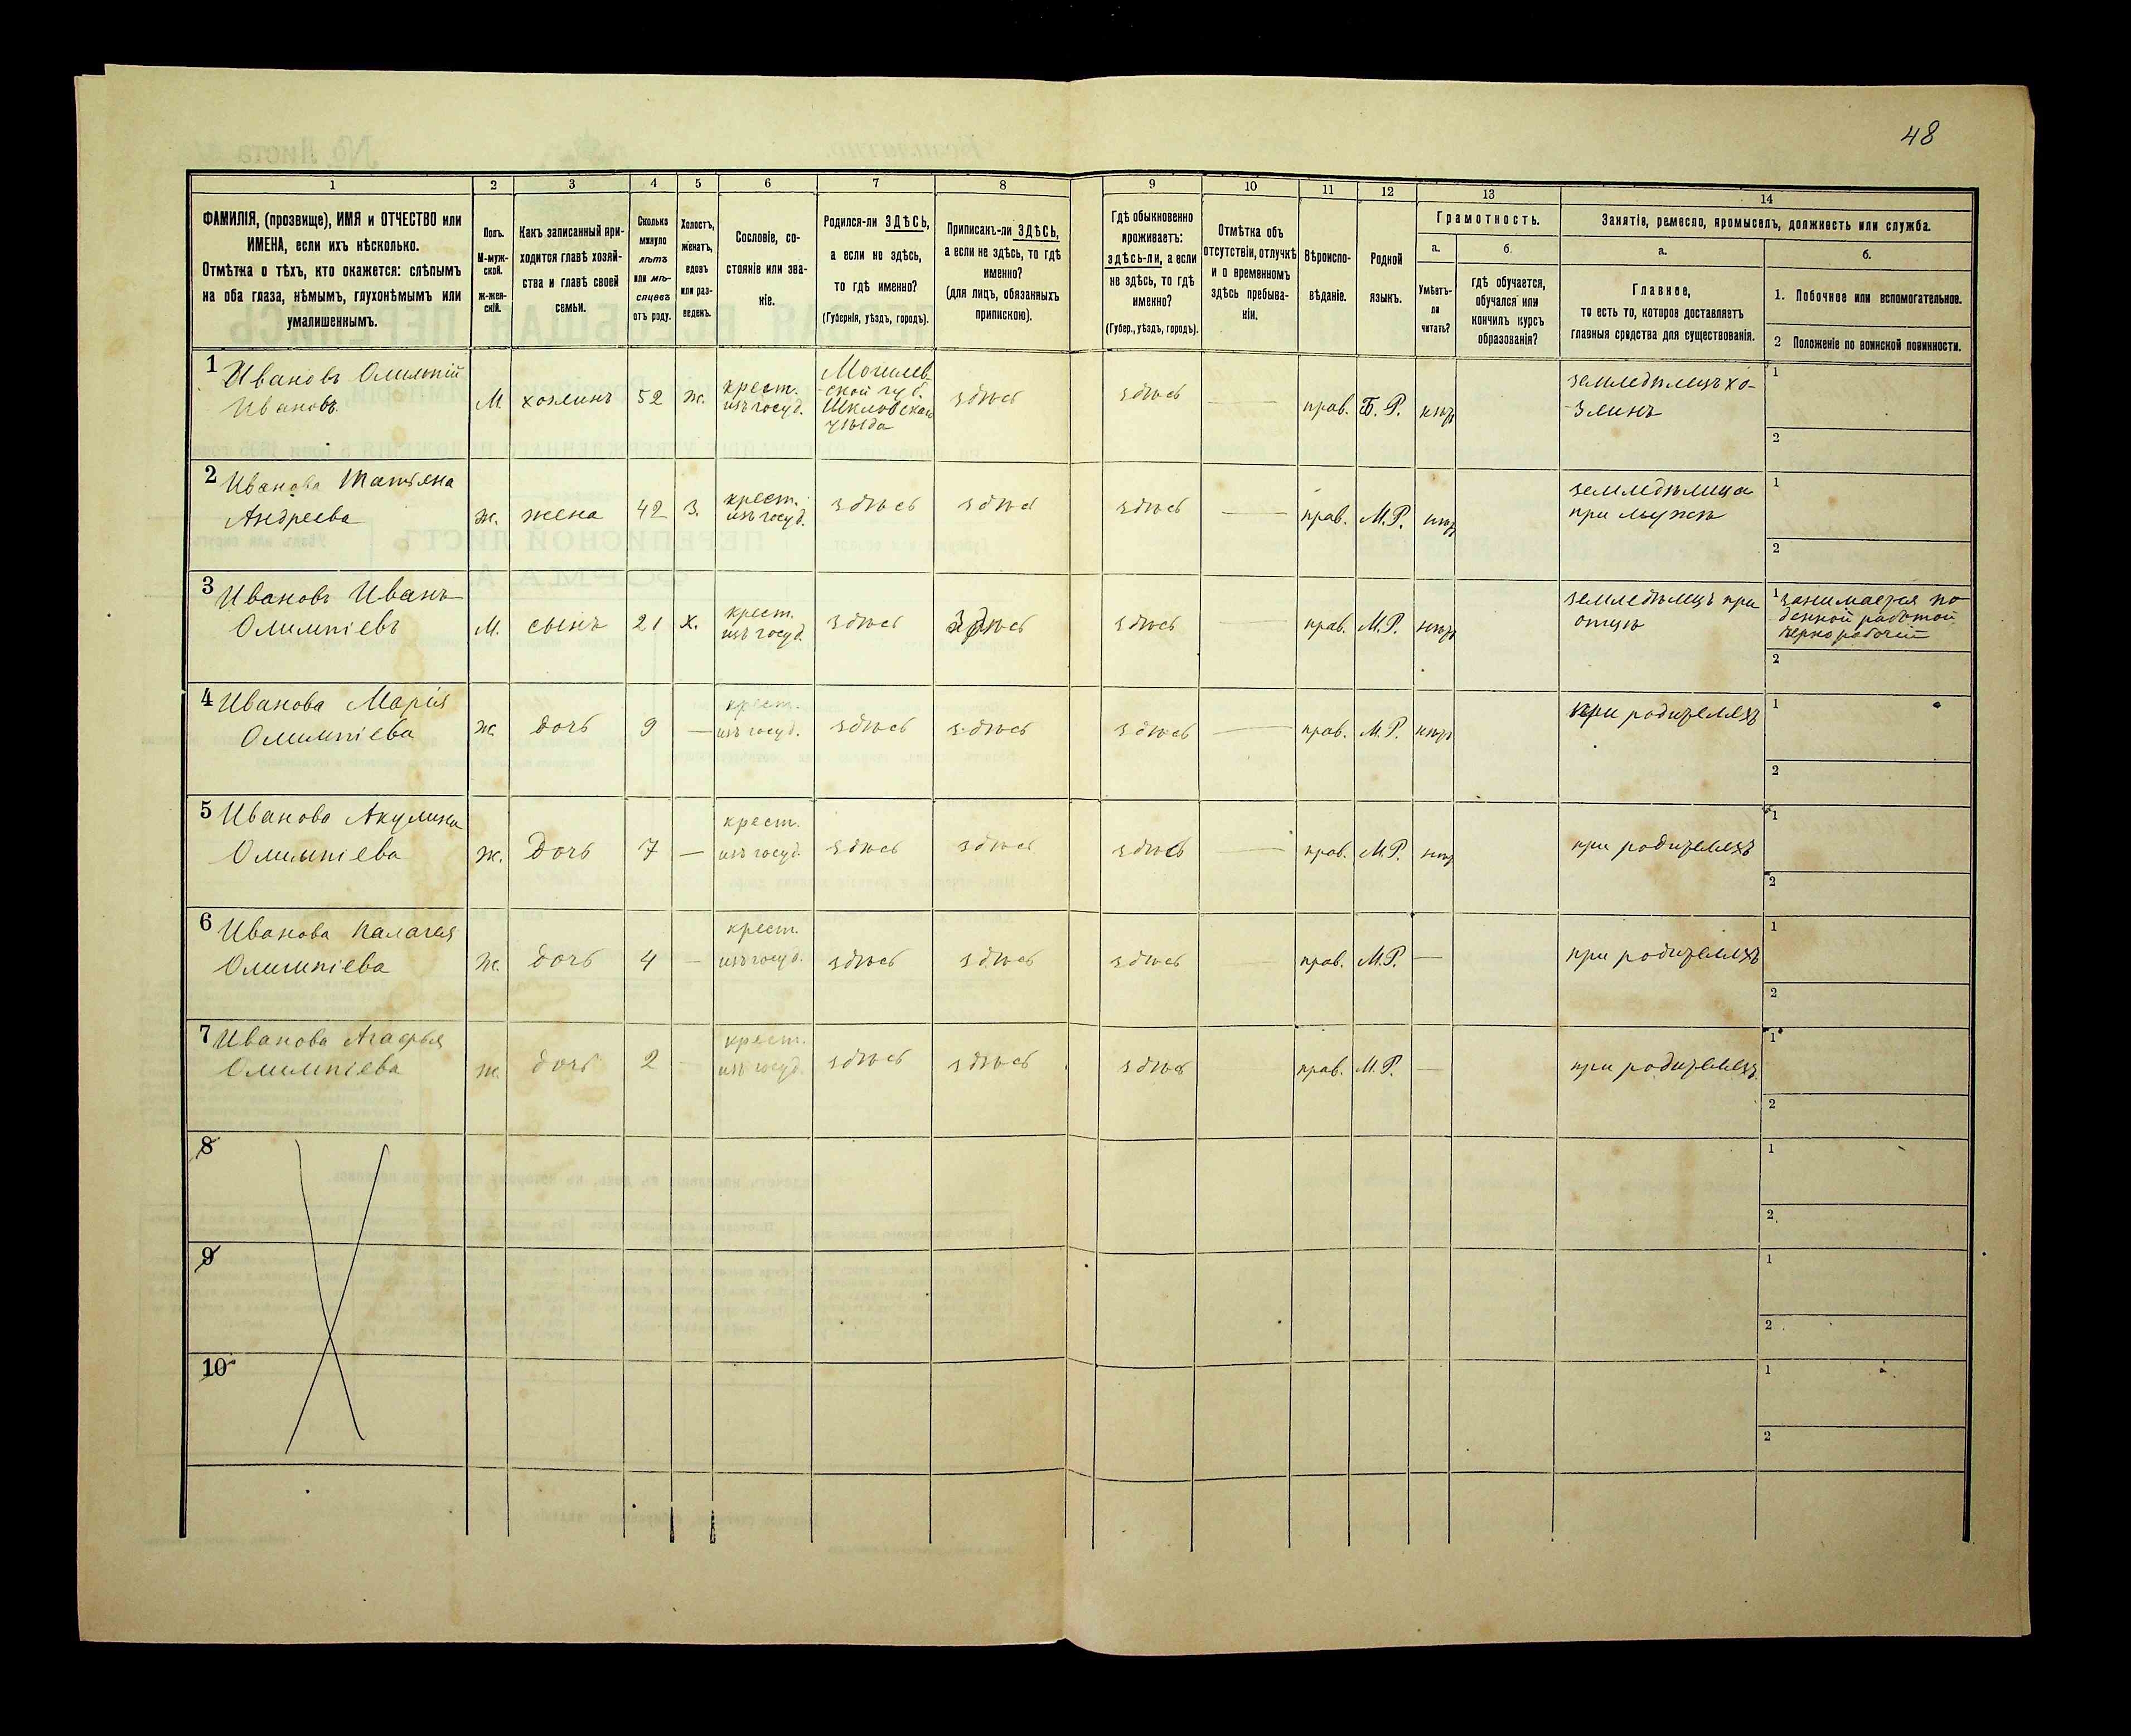 48
1 2 3 4 5 6 7 8 9 10 11 12 13 14
ФАМИЛІЯ, (прозвище), ИМЯ и ОТЧЕСТВО или
ИМЕНА, если ихъ нѣсколько.
Отмѣтка о тѣхъ, кто окажется: слѣпымъ
на оба глаза, нѣмымъ, глухонѣмымъ или
умалишеннымъ.
Полъ.
М-муж-
ской.
Ж-жен-
скій.
Какъ записанный при-
ходится главѣ хозяй-
ства и главѣ своей
семьи.
Сколько
минуло
лѣтъ
или мѣ-
сяцевъ
отъ роду.
Холостъ,
женатъ,
вдовъ
или раз-
веденъ.
Сословіе, со-
стояніе или зва-
ніе.
Родился-ли ЗДѢСЬ,
а если не здѣсь,
то гдѣ именно?
(Губернія, уѣздъ, городъ).
Приписанъ-ли ЗДѢСЬ,
а если не здѣсь, то гдѣ
именно?
(для лицъ, обязанныхъ
припискою).
Гдѣ обыкновенно
проживаетъ:
здѣсь-ли, а если
не здѣсь, то гдѣ
именно?
(Губер., уѣздъ, городъ).
Отмѣтка объ
отсутствіи, отлучкѣ
и о временномъ
здѣсь пребыва-
ніи.
Вѣроиспо-
вѣданіе.
Родной
языкъ.
Грамотность.
а.
Умѣетъ-
ли
читать?
б.
гдѣ обучается,
обучался или
кончилъ курсъ
образованія?
Занятіе, ремесло, промыселъ, должность или служба.
а.
Главное,
то есть то, которое доставляетъ
главныя средства для существованія.
б.
1. Побочное или вспомогательное.
2 Положеніе по воинской повинности.
1 Ивановъ Олимпій
Ивановъ.
М. хозяинъ 52 ж. крест.
изъ госуд.
Могилев
ской губ.
Шкловскаго
уѣзда
здѣсь здѣсь — прав. Б. Р. нѣтъ
земледѣлецъ хо-
зяинъ
1
2
2 Иванова Татьяна
Андреева
ж. жена 42 З. крест.
изъ госуд.
здѣсь здѣсь здѣсь — прав. М.Р. нѣтъ
земледѣлица
при мужѣ
1
2
3 Ивановъ Иванъ
Олимпіевъ
М. сынъ 21 х. крест.
изъ госуд.
здѣсь здѣсь здѣсь — прав. М.Р. нѣтъ
земледѣлецъ при
отцѣ
1 занимается по
денной работой
чернорабочій
2
4 Иванова Марія
Олимпіева
ж. дочь 9 — крест.
изъ госуд.
здѣсь здѣсь здѣсь — прав. М.Р. нѣтъ
при родителяхъ
1
2
5 Иванова Акулина
Олимпіева
ж. дочь 7 — крест.
изъ госуд.
здѣсь здѣсь здѣсь — прав. М.Р. нѣтъ
при родителяхъ
1
2
6 Иванова Палагея
Олимпіева
ж. дочь 4 — крест.
изъ госуд.
здѣсь здѣсь здѣсь — прав. М.Р. —
при родителяхъ
1
2
7 Иванова Агафья
Олимпіева
ж. дочь 2 — крест.
изъ госуд.
здѣсь здѣсь здѣсь прав. М.Р. —
при родителяхъ
1
2
8
1
2
9
1
2
10
1
2